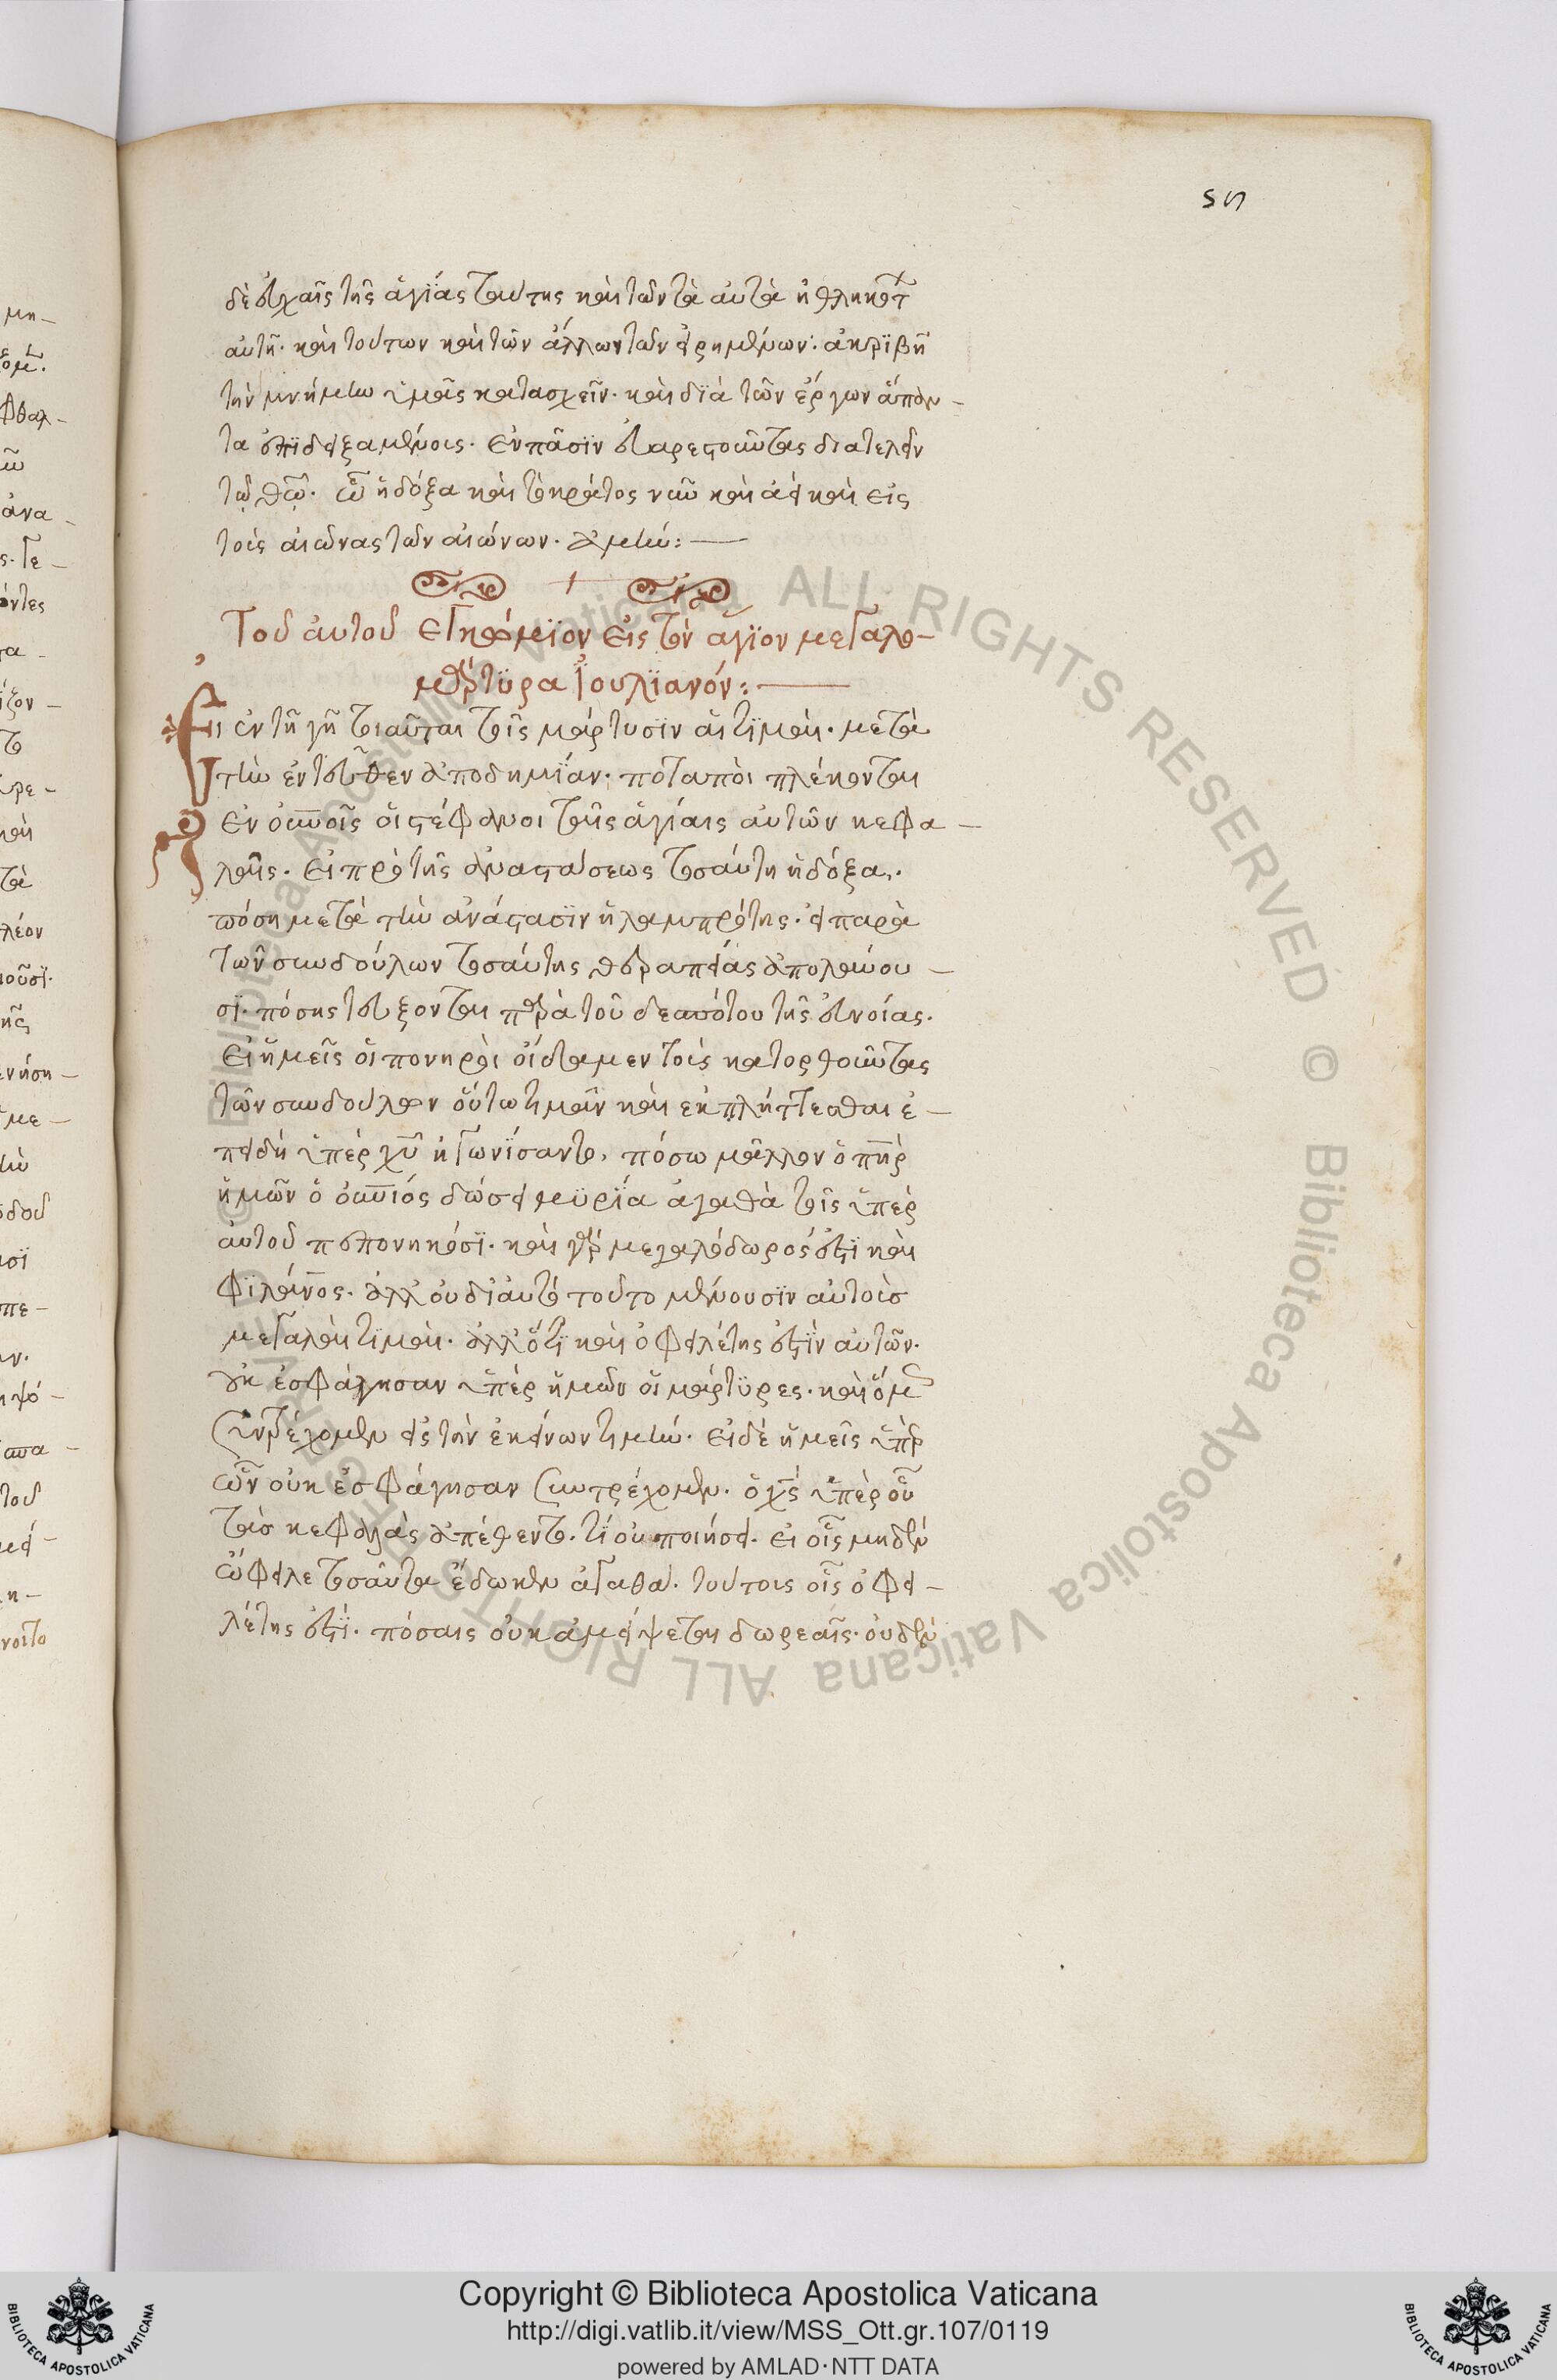 55
δὲ εὐχαῖς τῆς ἁγίας ταύτης καὶ τῶν τὰ αὐτὰ ἠθληκότ
αὐτῆ. καὶ τούτων καὶ τῶν ἄλλων τῶν εἰρημένων. ἀκριβῆ
τὴν μνήμην ὑμᾶς κατασχεῖν. καὶ διὰ τῶν ἔργων ἅπαν-
τα ἐπιδειξαμένοις. ἐν πᾶσιν εὐαρεστοῦντας διατελεῖν
τῷ θῷ. ὧ ἡ δόξα καὶ τὸ κράτος νῦν καὶ ἀεὶ καὶ εἰς
τοὺς αἰῶνας τῶν αἰώνων. ἀμήν:—
Τοῦ αὐτοῦ ἐγκώμϊον εἰς τὸν ἅγϊον μεγαλο-
μάρτϋρα Ἰουλϊανόν:—
Εἰ ἐν τῆ γῆ τοιαῦται τοῖς μάρτυσϊν αἱ τϊμαὶ. μετὰ
τὴν ἐντεῦθεν ἀποδημίαν. πόταποὶ πλέκονται
ἐν οὐνοῖς οἱ στέφανοι ταῖς ἁγίαις αὐτῶν κεφα-
λαῖς. εἰ πρὸ τῆς ἀναστάσεως τοσαύτη ἡ δόξα.
πόση μετὰ τὴν ἀνάστασϊν ἡ λαμπρότης. εἰ παρὰ
τῶν συνδούλων τοσαύτης θεραπείας ἀπολαύου-
σϊ. πόσης τεύξονται παρὰ τοῦ δεσπότου τῆς εὐνοίας.
εἰ ἡμεῖς οἱ πονηροὶ οἴδαμεν τοὺς κατορθοῦντας
τῶν συνδούλων οὕτω τιμᾶν καὶ ἐκπλήττεσθαι ἐ-
πειδὴ ὑπὲρ χυ ἠγωνίσαντο, πόσω μᾶλλον ὁ πηρ
ἡμῶν ὁ οὐνιός δώσει μϋρία ἀγαθὰ τοῖς ὑπὲρ
αὐτοῦ πεπονηκόσϊ. καὶ γὰρ μεγαλόδωρός ἐστϊ καὶ
φϊλάνος. ἀλλ οὐ δϊ αὐτὸ τοῦτο μένουσϊν αὐτοὺσ
μεγάλαι τϊμαὶ. ἀλλ ὅτϊ καὶ ὀφειλέτης ἐστϊν αὐτῶν.
οὐκ ἐσφάγησαν ὑπὲρ ἡμῶν οἱ μάρτϋρες. καὶ ὅμ
συντρέχομεν εἰς τὴν ἐκείνων τιμήν. εἰ δὲ ἡμεῖς ὑπὲρ
ὧν οὐκ ἐσφάγησαν συντρέχομεν. ὁ χς ὑπὲρ οὗ
τὰσ κεφαλὰς ἀπέθεντο. τί οὐ ποιήσει. εἰ οἷς μηδὲν
ὤφειλε τοσαῦτα ἔδωκεν ἀγαθά. τούτοις οἷς ὀφει-
λέτης ἐστϊ. πόσαις οὐκ ἀμείψεται δωρεαῖς. οὐδὲν
© Biblioteca Apostolica Vaticana ALL RIGHTS RESERVED © Biblioteca Apostolica Vaticana ALL RIGHTS RESERVED
BIBLIOTECA APOSTOLICA VATICANA
Copyright © Biblioteca Apostolica Vaticana
http://digi.vatlib.it/view/MSS_Ott.gr.107/0119
powered by AMLAD·NTT DATA
BIBLIOTECA APOSTOLICA VATICANA